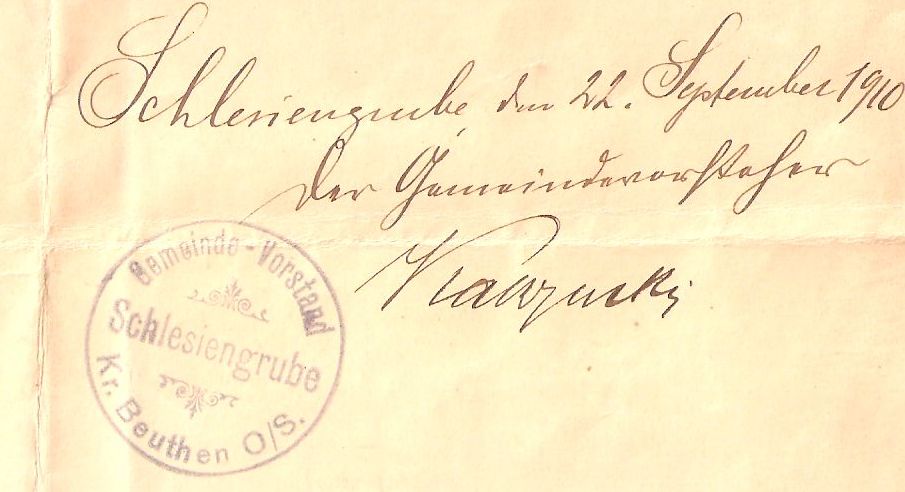 Schlesiengrube den 22. September 1910
Der Gemeindevorsteher
Gemeinde-Vorstand
Schlesiengrube
Kr. Beuthen O/S.